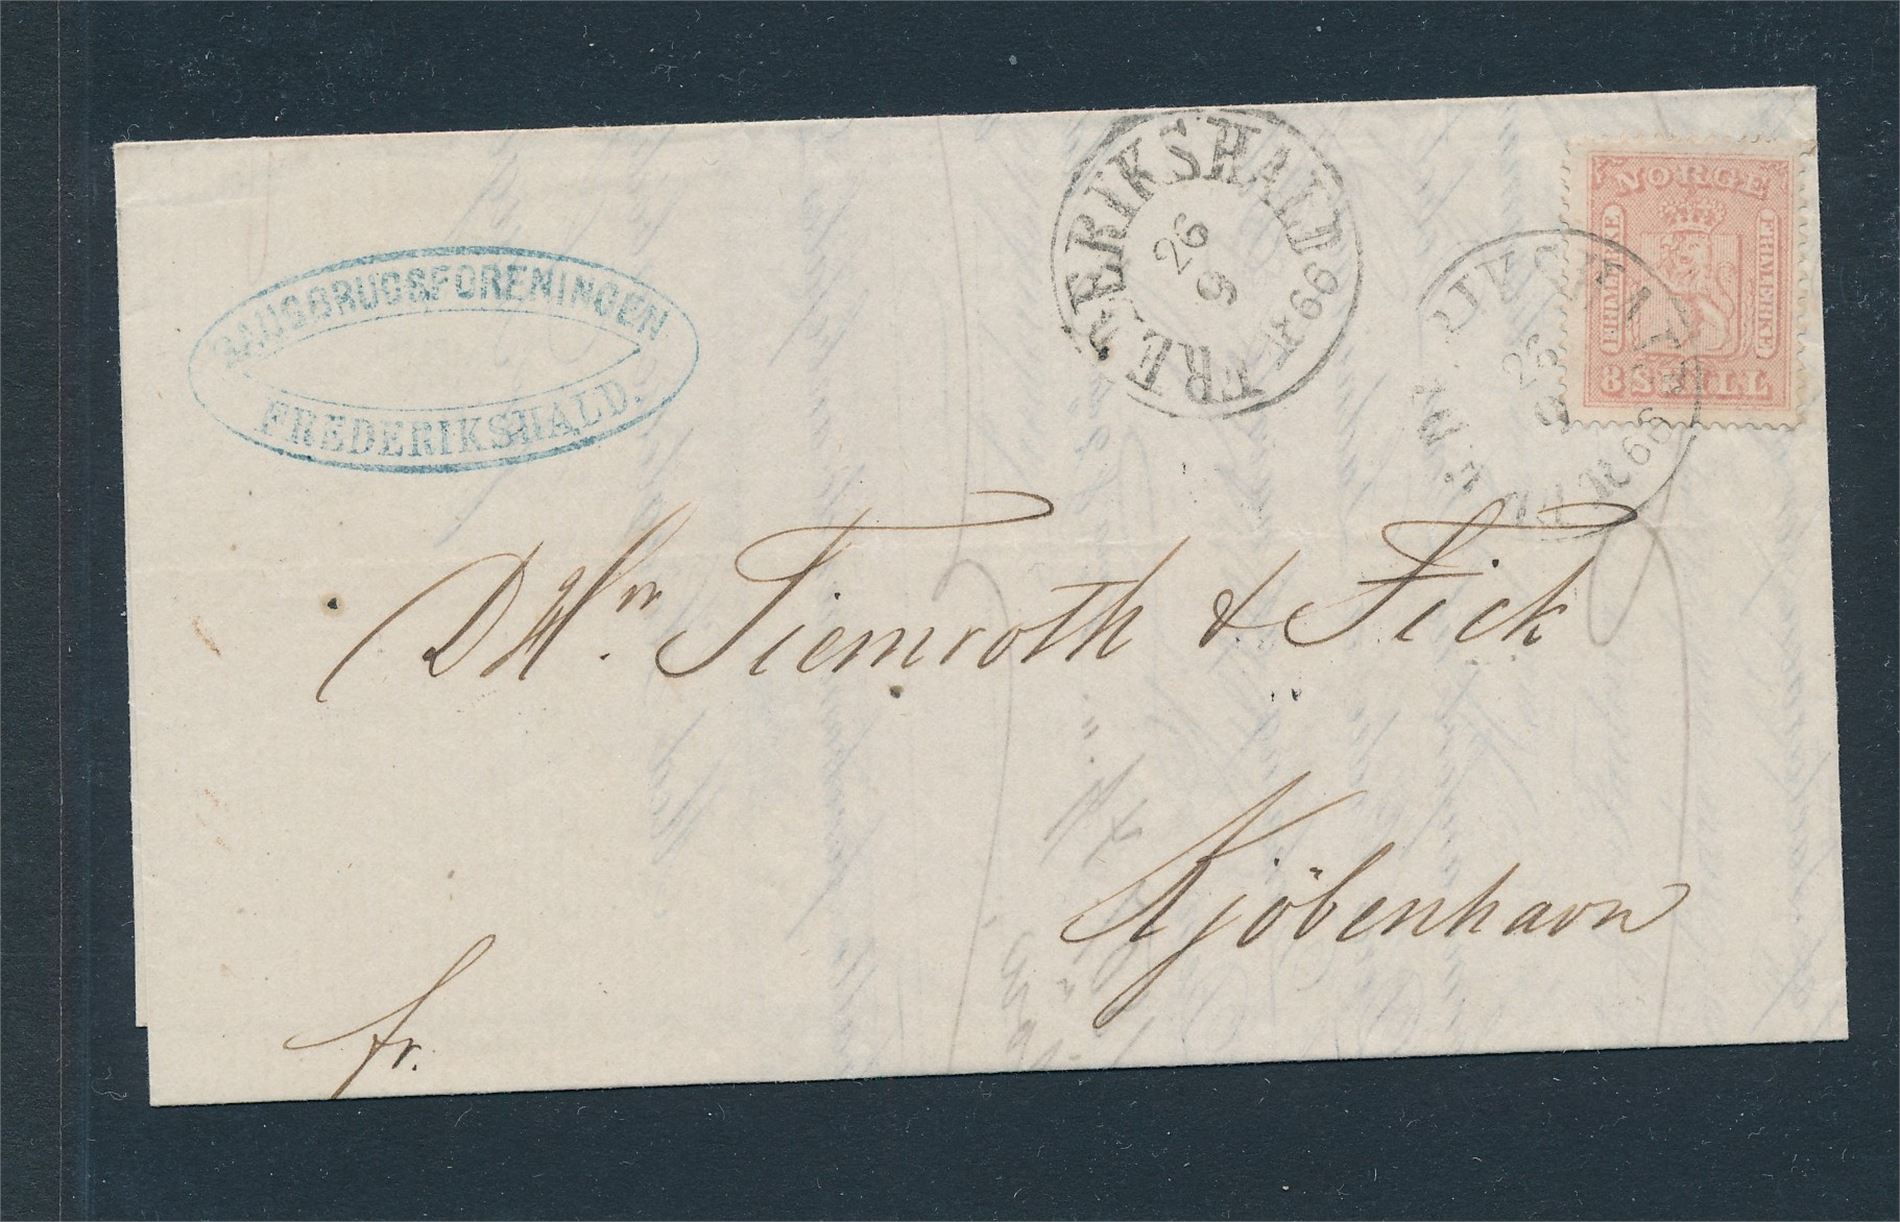 SAUGBRUGSFORENINGEN
FREDERIKSHALD.
FREDERIKSHALD
26
9
1866
NORGE
FRIMÆRKE
FRIMÆRKE
8 SKILL
26
9
1866
DHrr. Tiemroth & Fick
Kjöbenhavn
fr.